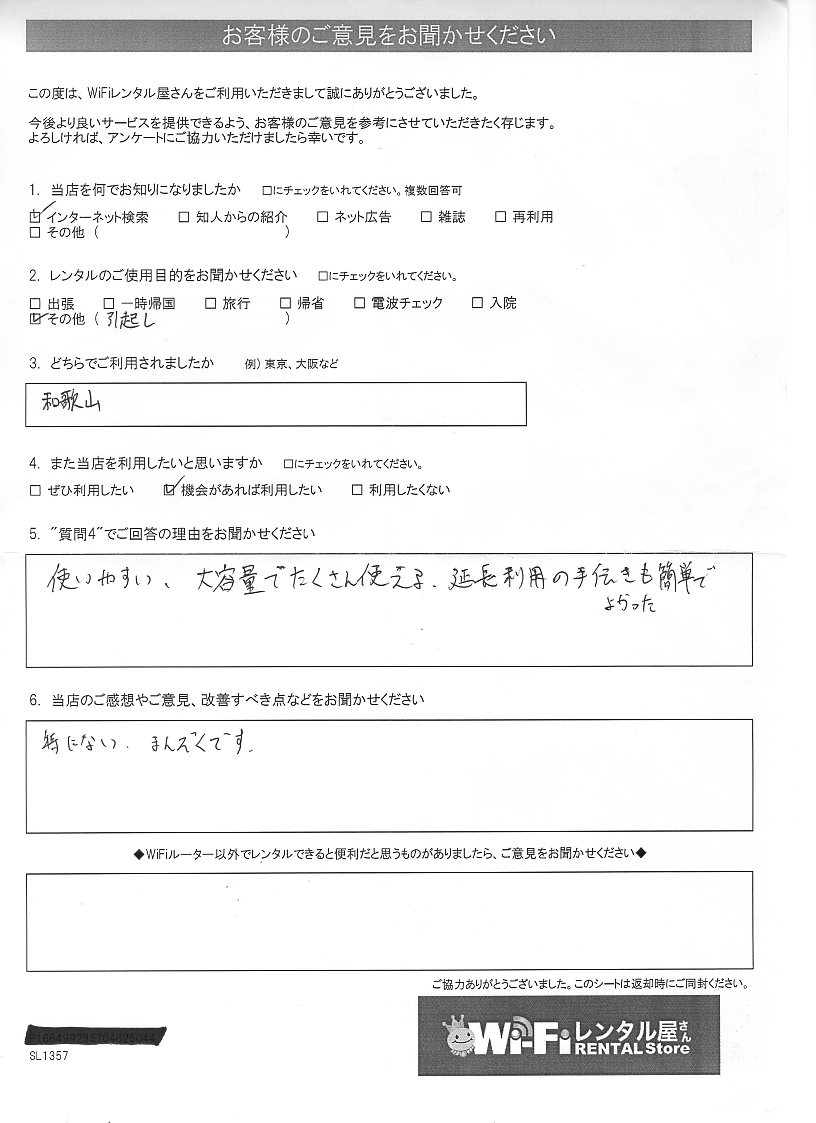 お客様のご意見をお聞かせください
この度は、WiFiレンタル屋さんをご利用いただきまして誠にありがとうございました。
今後より良いサービスを提供できるよう、お客様のご意見を参考にさせていただきたく存じます。
よろしければ、アンケートにご協力いただけましたら幸いです。
1. 当店を何でお知りになりましたか □にチェックをいれてください。複数回答可
☑インターネット検索 □ 知人からの紹介 □ ネット広告 □ 雑誌 □ 再利用
□ その他 ( )
2. レンタルのご使用目的をお聞かせください □にチェックをいれてください。
□ 出張 □ 一時帰国 □ 旅行 □ 帰省 □ 電波チェック □ 入院
☑その他 ( 引起し )
3. どちらでご利用されましたか 例）東京、大阪など
和歌山
4. また当店を利用したいと思いますか □にチェックをいれてください。
□ ぜひ利用したい ☑機会があれば利用したい □ 利用したくない
5. "質問4"でご回答の理由をお聞かせください
使いやすい、大容量でたくさん使える、延長利用の手伝きも簡単で
よかった
6. 当店のご感想やご意見、改善すべき点などをお聞かせください
特にない、まんぞくです。
◆WiFiルーター以外でレンタルできると便利だと思うものがありましたら、ご意見をお聞かせください◆
ご協力ありがとうございました。このシートは返却時にご同封ください。
Wi-Fiレンタル屋さん
RENTAL Store
SL1357